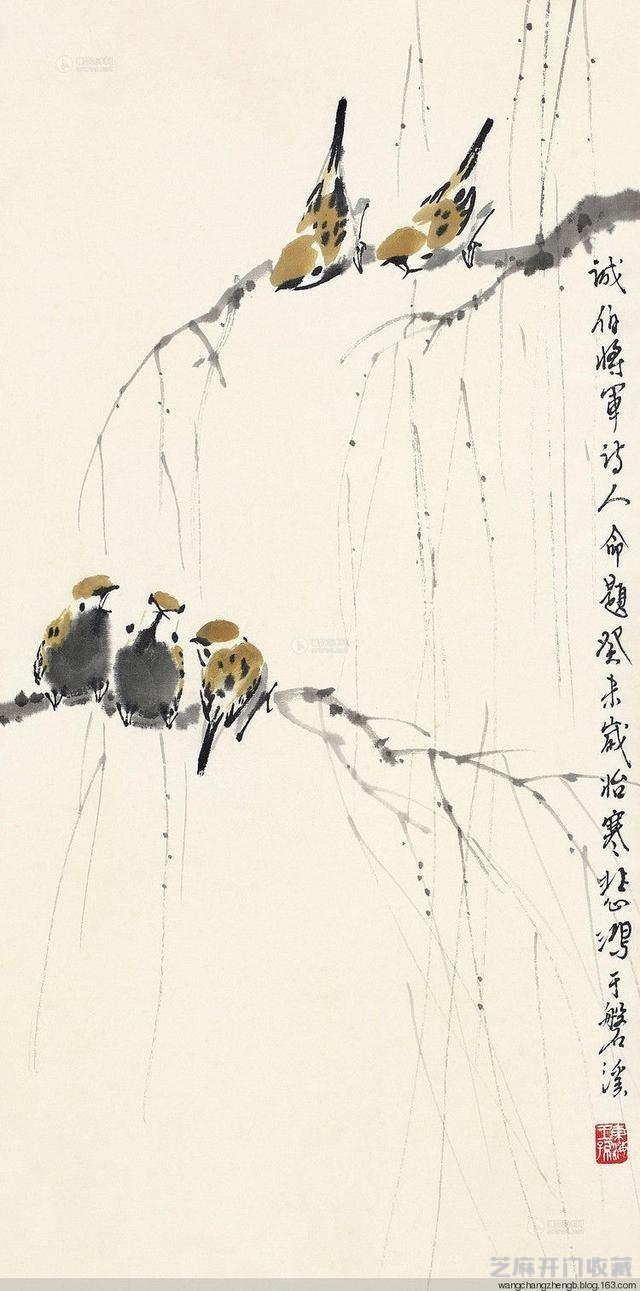 誠伯將軍詩人命題癸未歲始寒悲鴻于磐溪
東海王孫
芝麻开门收藏
wangchangzhengb.blog.163.com